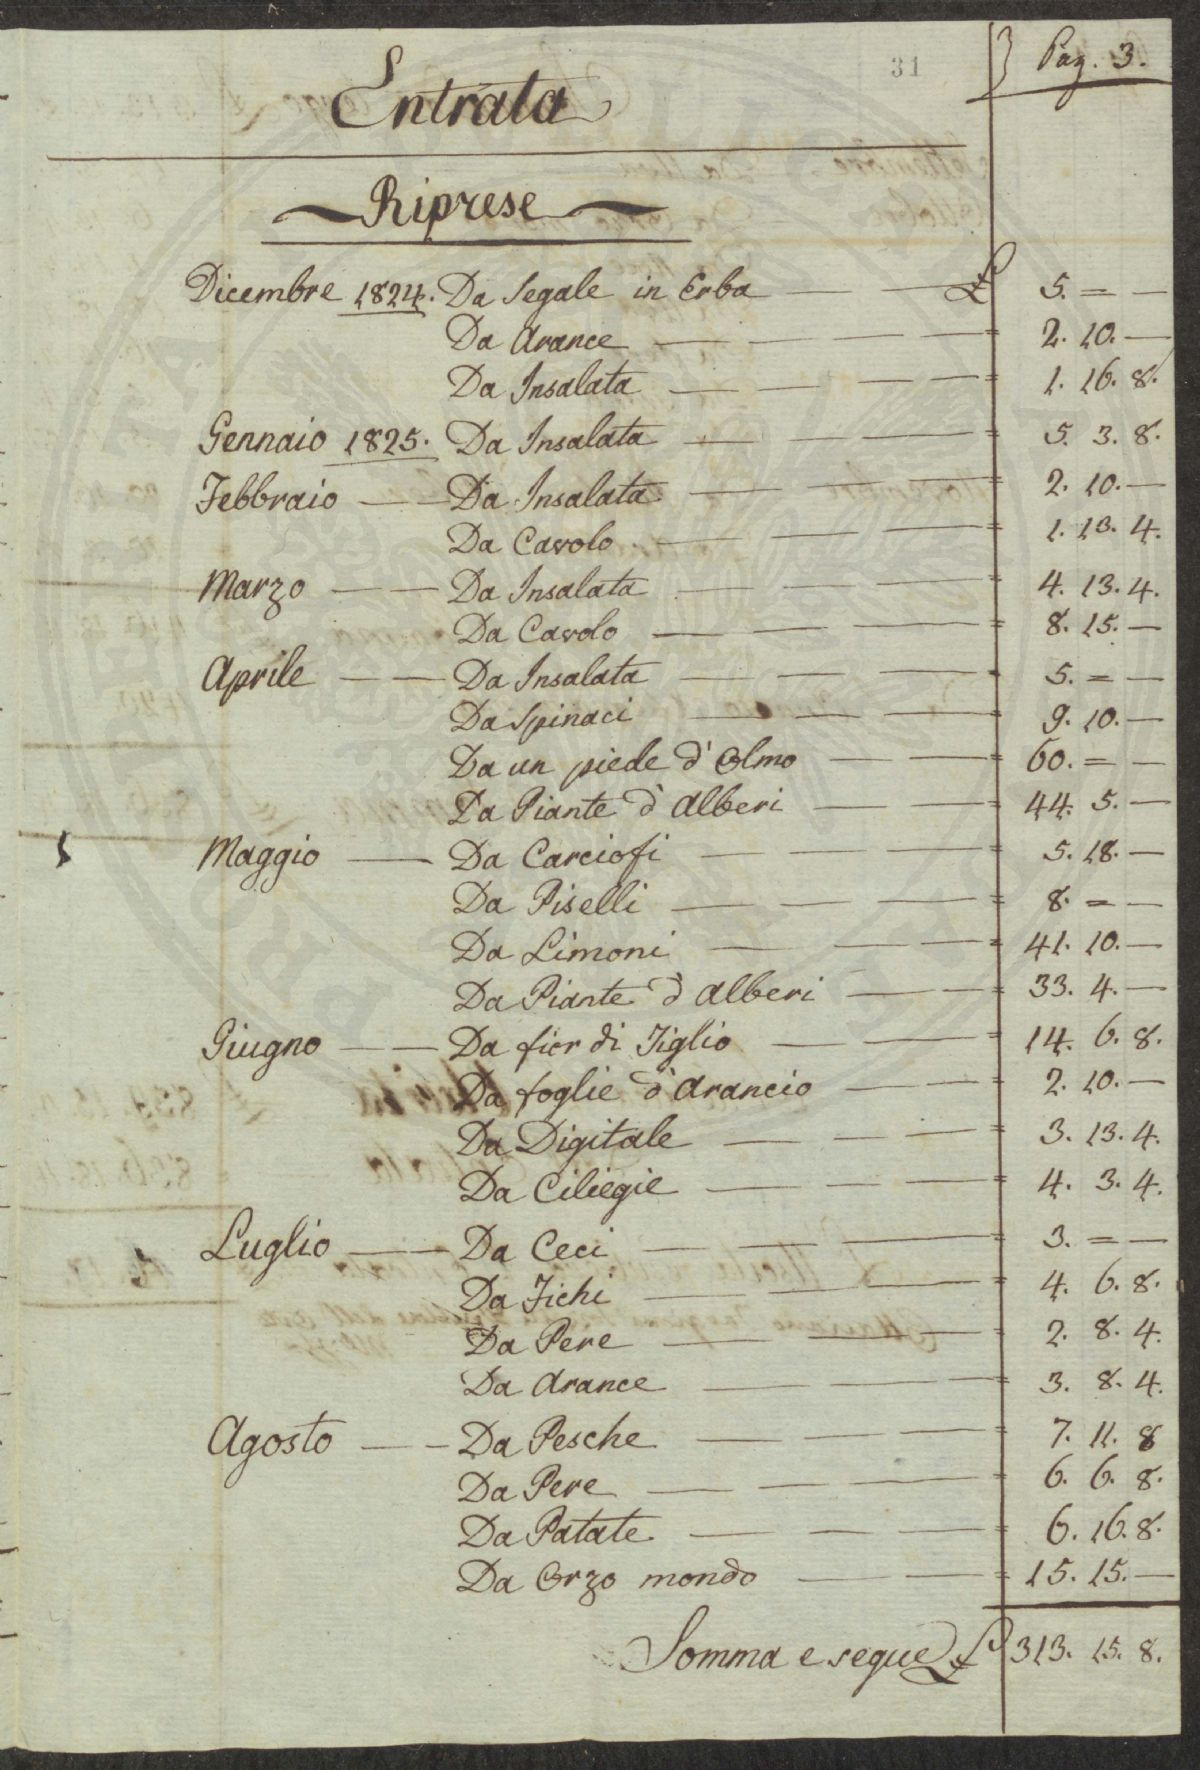 31
Pag. 3.
Entrata
Riprese
Dicembre 1824. Da Segale in Erba — — £ 5. = —
Da Arance — — — — = 2. 10. —
Da Insalata — — — — = 1. 16. 8.
Gennaio 1825. Da Insalata — — — = 5. 3. 8.
Febbraio — Da Insalata — — — = 2. 10. —
Da Cavolo — — — = 1. 13. 4.
Marzo — — Da Insalata — — — = 4. 13. 4.
Da Cavolo — — — = 8. 15. —
Aprile — — Da Insalata — — — = 5. = —
Da Spinaci — — — = 9. 10. —
Da un piede d'Olmo — — — = 60. = —
Da Piante d'Alberi — — = 44. 5. —
Maggio — Da Carciofi — — — = 5. 18. —
Da Piselli — — — — = 8. = —
Da Limoni — — — = 41. 10. —
Da Piante d'Alberi — — = 33. 4. —
Giugno — — Da fior di Tiglio — — — = 14. 6. 8.
Da foglie d'Arancio — — = 2. 10. —
Da Digitale — — — = 3. 13. 4.
Da Ciliegie — — — = 4. 3. 4.
Luglio — — Da Ceci — — — = 3. = —
Da Fichi — — — = 4. 6. 8.
Da Pere — — — = 2. 8. 4.
Da Arance — — — = 3. 8. 4.
Agosto — — Da Pesche — — — = 7. 11. 8
Da Pere — — — — = 6. 6. 8.
Da Patate — — — = 6. 16. 8.
Da Orzo mondo — — — = 15. 15. —
Somma e segue £ 313. 15. 8.